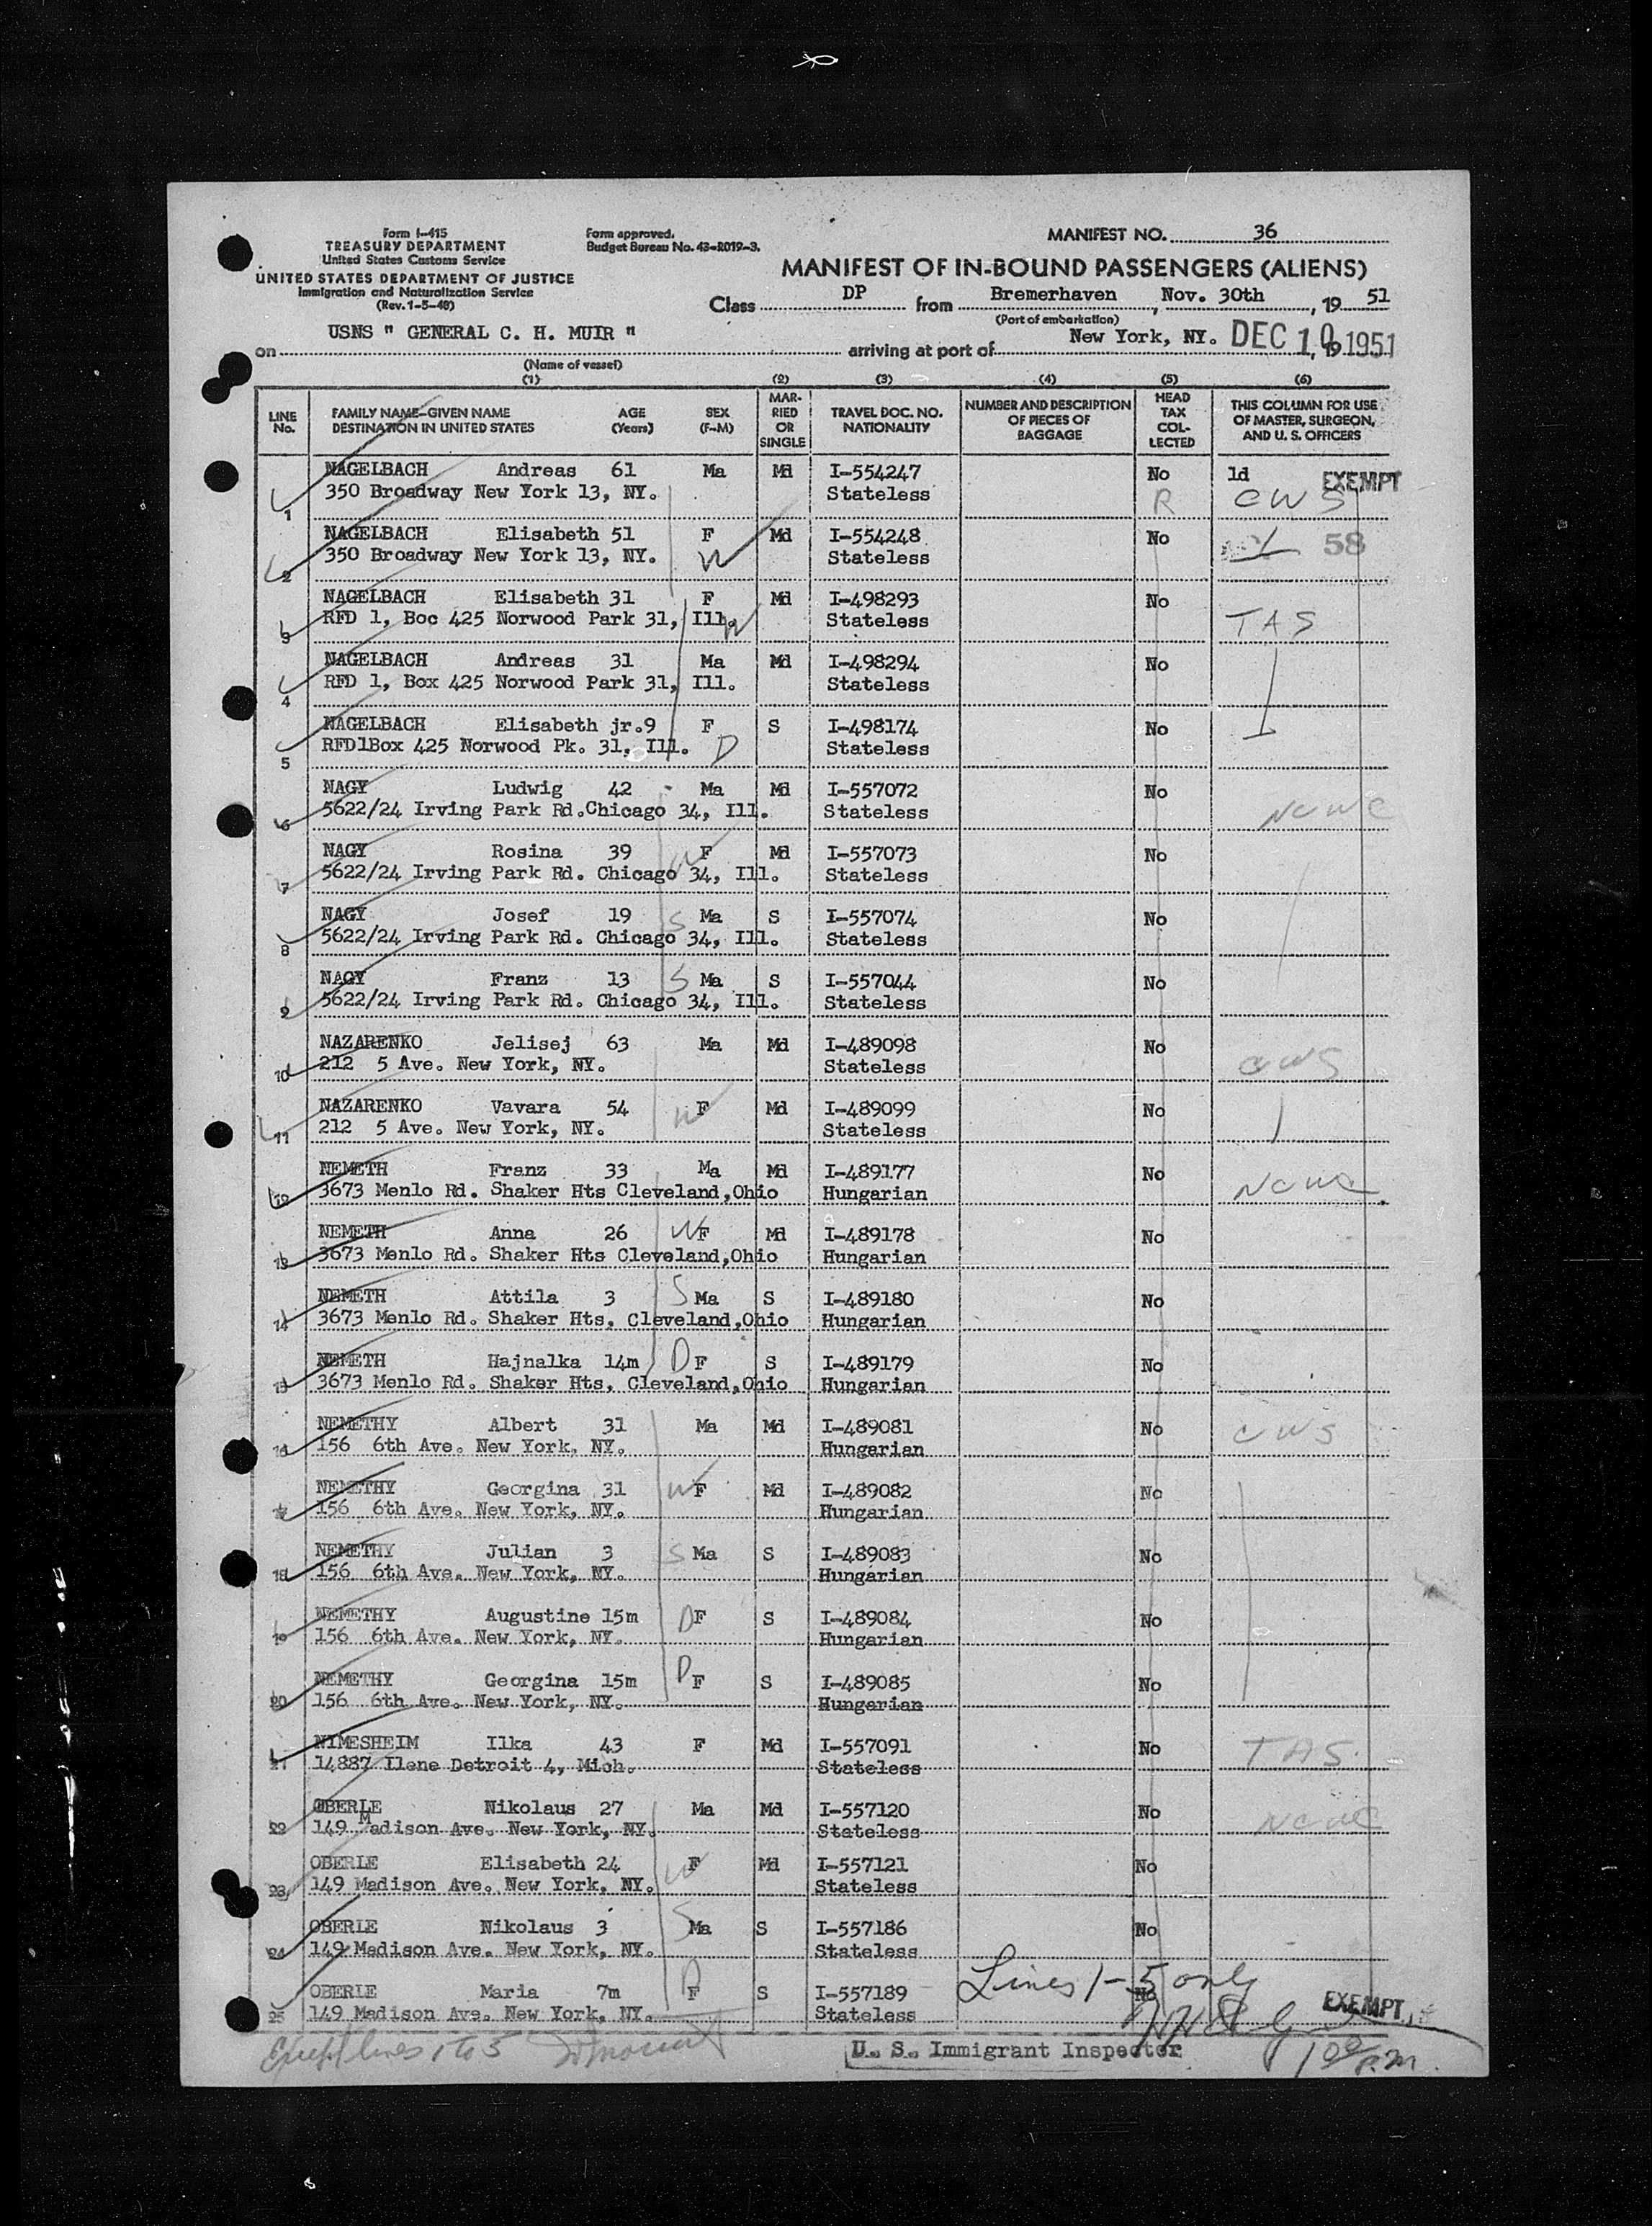 Form I-415
TREASURY DEPARTMENT
United States Customs Service
UNITED STATES DEPARTMENT OF JUSTICE
Immigration and Naturalization Service
(Rev. 1-5-48)
Form approved.
Budget Bureau No. 43-R019-3.
MANIFEST NO. 36
MANIFEST OF IN-BOUND PASSENGERS (ALIENS)
Class DP from Bremerhaven, Nov. 30th, 19 51
(Port of embarkation)
on USNS " GENERAL C. H. MUIR " arriving at port of New York, NY. DEC 10 1951, 19
(Name of vessel)
(1) (2) (3) (4) (5) (6)
LINE No. FAMILY NAME-GIVEN NAME DESTINATION IN UNITED STATES AGE (Years) SEX (F-M) MARRIED OR SINGLE TRAVEL DOC. NO. NATIONALITY NUMBER AND DESCRIPTION OF PIECES OF BAGGAGE HEAD TAX COLLECTED THIS COLUMN FOR USE OF MASTER, SURGEON, AND U. S. OFFICERS
NAGELBACH Andreas 61 Ma Md I-554247 No 1d EXEMPT
1 350 Broadway New York 13, NY. Stateless R CWS
NAGELBACH Elisabeth 51 F Md I-554248 No 58
2 350 Broadway New York 13, NY. W Stateless
NAGELBACH Elisabeth 31 F Md I-498293 No
3 RFD 1, Boc 425 Norwood Park 31, Ill. W Stateless TAS
NAGELBACH Andreas 31 Ma Md I-498294 No
4 RFD 1, Box 425 Norwood Park 31, Ill. Stateless
NAGELBACH Elisabeth jr.9 F S I-498174 No
5 RFD1Box 425 Norwood Pk. 31, Ill. D Stateless
NAGY Ludwig 42 Ma Md I-557072 No
6 5622/24 Irving Park Rd.Chicago 34, Ill. Stateless NCWC
NAGY Rosina 39 W F Md I-557073 No
7 5622/24 Irving Park Rd. Chicago 34, Ill. Stateless
NAGY Josef 19 S Ma S I-557074 No
8 5622/24 Irving Park Rd. Chicago 34, Ill. Stateless
NAGY Franz 13 S Ma S I-557044 No
9 5622/24 Irving Park Rd. Chicago 34, Ill. Stateless
NAZARENKO Jelisej 63 Ma Md I-489098 No
10 212 5 Ave. New York, NY. Stateless CWS
NAZARENKO Vavara 54 W F Md I-489099 No
11 212 5 Ave. New York, NY. Stateless
NEMETH Franz 33 Ma Md I-489177 No
12 3673 Menlo Rd. Shaker Hts Cleveland,Ohio Hungarian NCWC
NEMETH Anna 26 W F Md I-489178 No
13 3673 Menlo Rd. Shaker Hts Cleveland,Ohio Hungarian
NEMETH Attila 3 S Ma S I-489180 No
14 3673 Menlo Rd. Shaker Hts. Cleveland,Ohio Hungarian
NEMETH Hajnalka 14m D F S I-489179 No
15 3673 Menlo Rd. Shaker Hts. Cleveland,Ohio Hungarian
NEMETHY Albert 31 Ma Md I-489081 No CWS
16 156 6th Ave. New York, NY. Hungarian
NEMETHY Georgina 31 W F Md I-489082 No
17 156 6th Ave. New York, NY. Hungarian
NEMETHY Julian 3 S Ma S I-489083 No
18 156 6th Ave. New York, NY. Hungarian
NEMETHY Augustine 15m D F S I-489084 No
19 156 6th Ave. New York, NY. Hungarian
NEMETHY Georgina 15m D F S I-489085 No
20 156 6th Ave. New York, NY. Hungarian
NIMESHEIM Ilka 43 F Md I-557091 No TAS
21 14887 Ilene Detroit 4, Mich. Stateless
OBERLE Nikolaus 27 Ma Md I-557120 No NCWC
22 149 Madison Ave. New York, NY. Stateless
OBERLE Elisabeth 24 W F Md I-557121 No
23 149 Madison Ave. New York, NY. Stateless
OBERLE Nikolaus 3 S Ma S I-557186 No
24 149 Madison Ave. New York, NY. Stateless
OBERLE Maria 7m D F S I-557189 Lines 1-5 only No EXEMPT
25 149 Madison Ave. New York, NY. Stateless
Except lines 1 to 5
U. S. Immigrant Inspector 1 00 P.M.